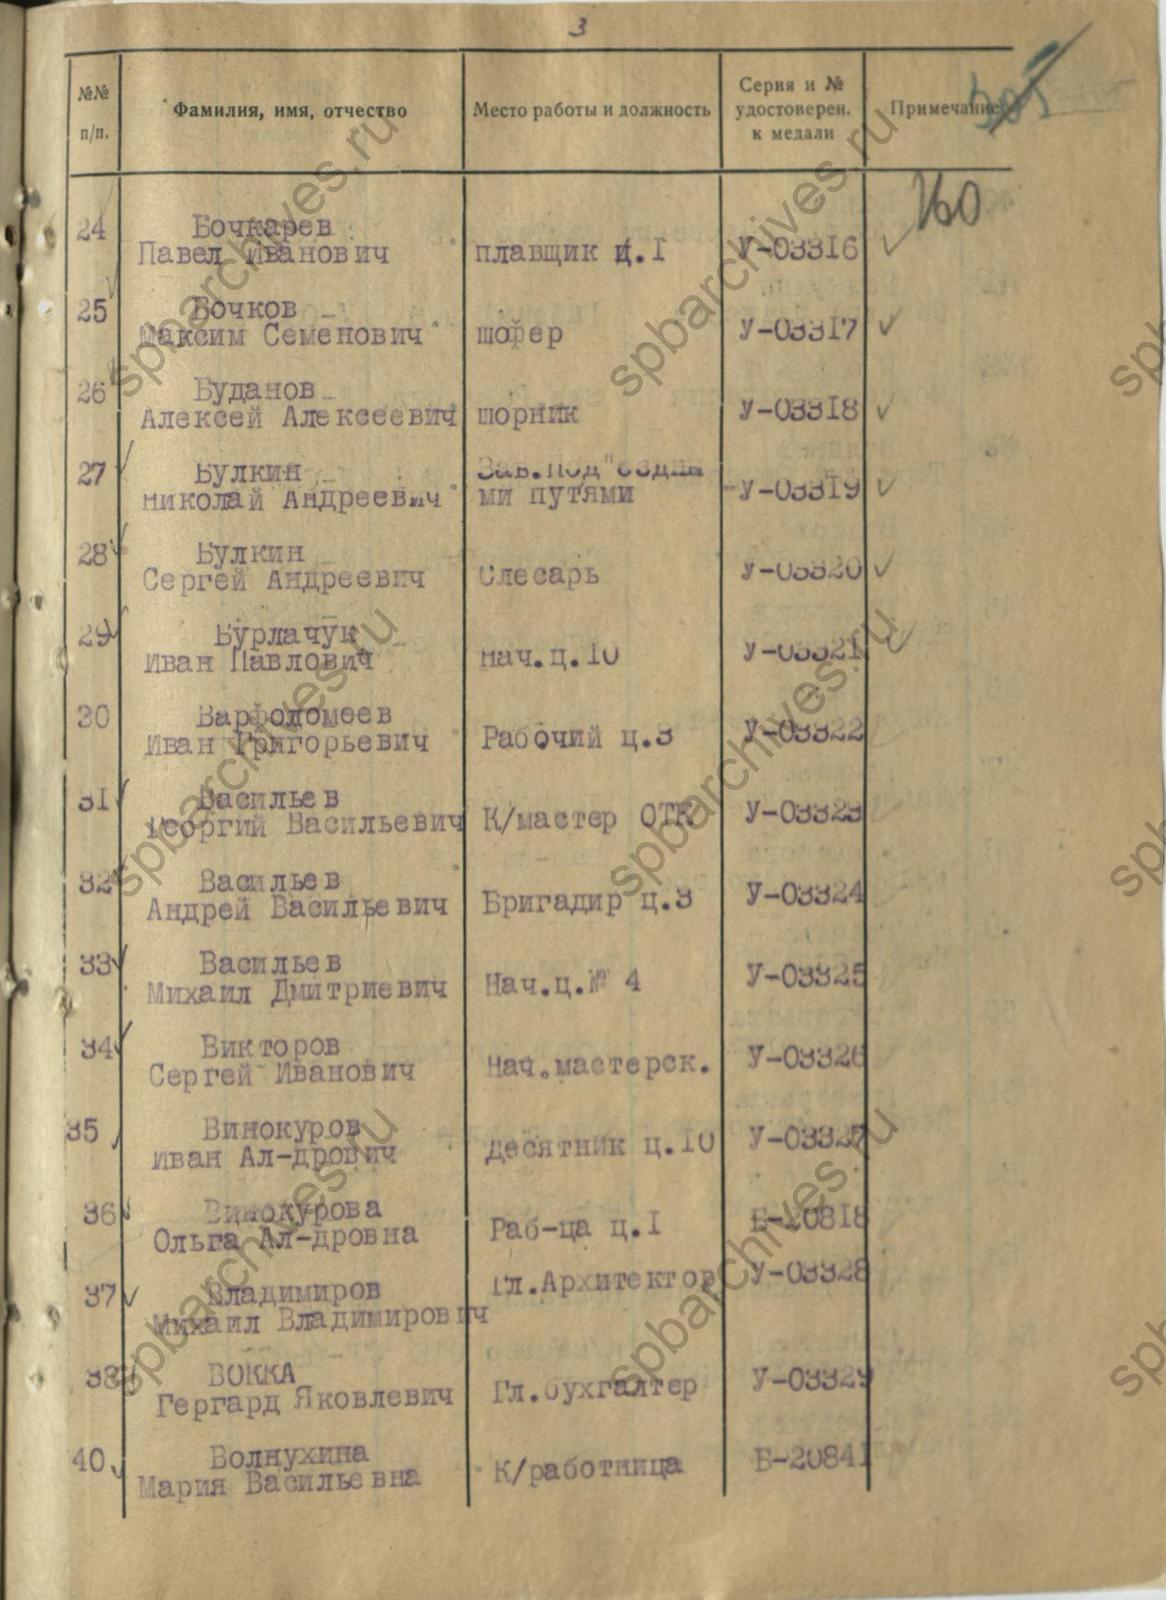 3
№№ п/п.
Фамилия, имя, отчество
Место работы и должность
Серия и № удостоверен. к медали
Примечание
160
24 Бочкарев
Павел Иванович плавщик ц.I У-03316
25 Бочков
Максим Семенович шофер У-03317
26 Буданов
Алексей Алексеевич шорник У-03318
27 Булкин Зав.под"ездны
Николай Андреевич ми путями У-03319
28 Булкин
Сергей Андреевич Слесарь У-03320
29 Бурлачук
Иван Павлович Нач.ц.10 У-03321
30 Варфоломеев
Иван Григорьевич Рабочий ц.3 У-03322
31 Васильев
Георгий Васильевич К/мастер ОТК У-03323
32 Васильев
Андрей Васильевич Бригадир ц.3 У-03324
33 Васильев
Михаил Дмитриевич Нач.ц.№ 4 У-03325
34 Викторов
Сергей Иванович Нач.мастерск. У-03326
35 Винокуров
Иван Ал-дрович десятник ц.10 У-03327
36 Винокурова
Ольга Ал-дровна Раб-ца ц.I Б-20818
37 Владимиров Гл.Архитектор У-03328
Михаил Владимирович
38 ВОККА
Гергард Яковлевич Гл.бухгалтер У-03329
40 Волнухина
Мария Васильевна К/работница Б-20841
spbarchives.ru
spbarchives.ru
spbarchives.ru
spbarchives.ru
spbarchives.ru
spbarchives.ru